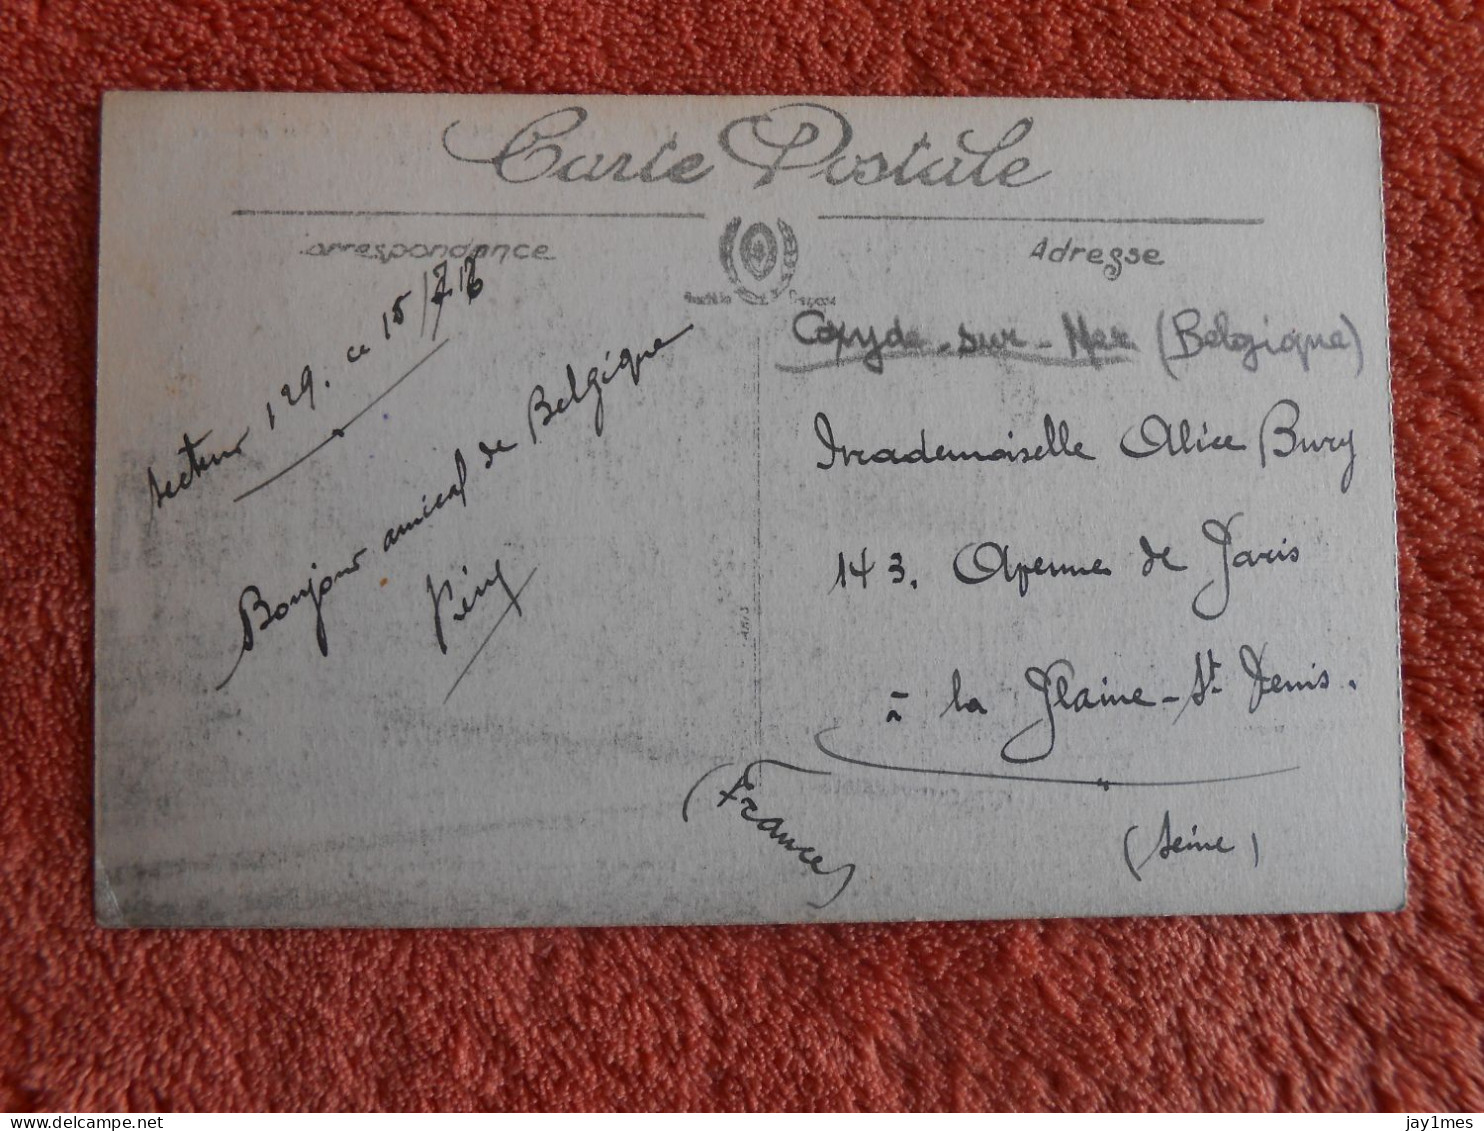 Carte Postale
Correspondance
Adresse
Secteur 129. ce 15/7 16
Bonjour amical de Belgique
Coxyde-sur-Mer (Belgique)
Mademoiselle Alice Bury
143. Avenue de Paris
à la Plaine-St Denis.
(France)
(Seine)
jay1mes
www.delcampe.net